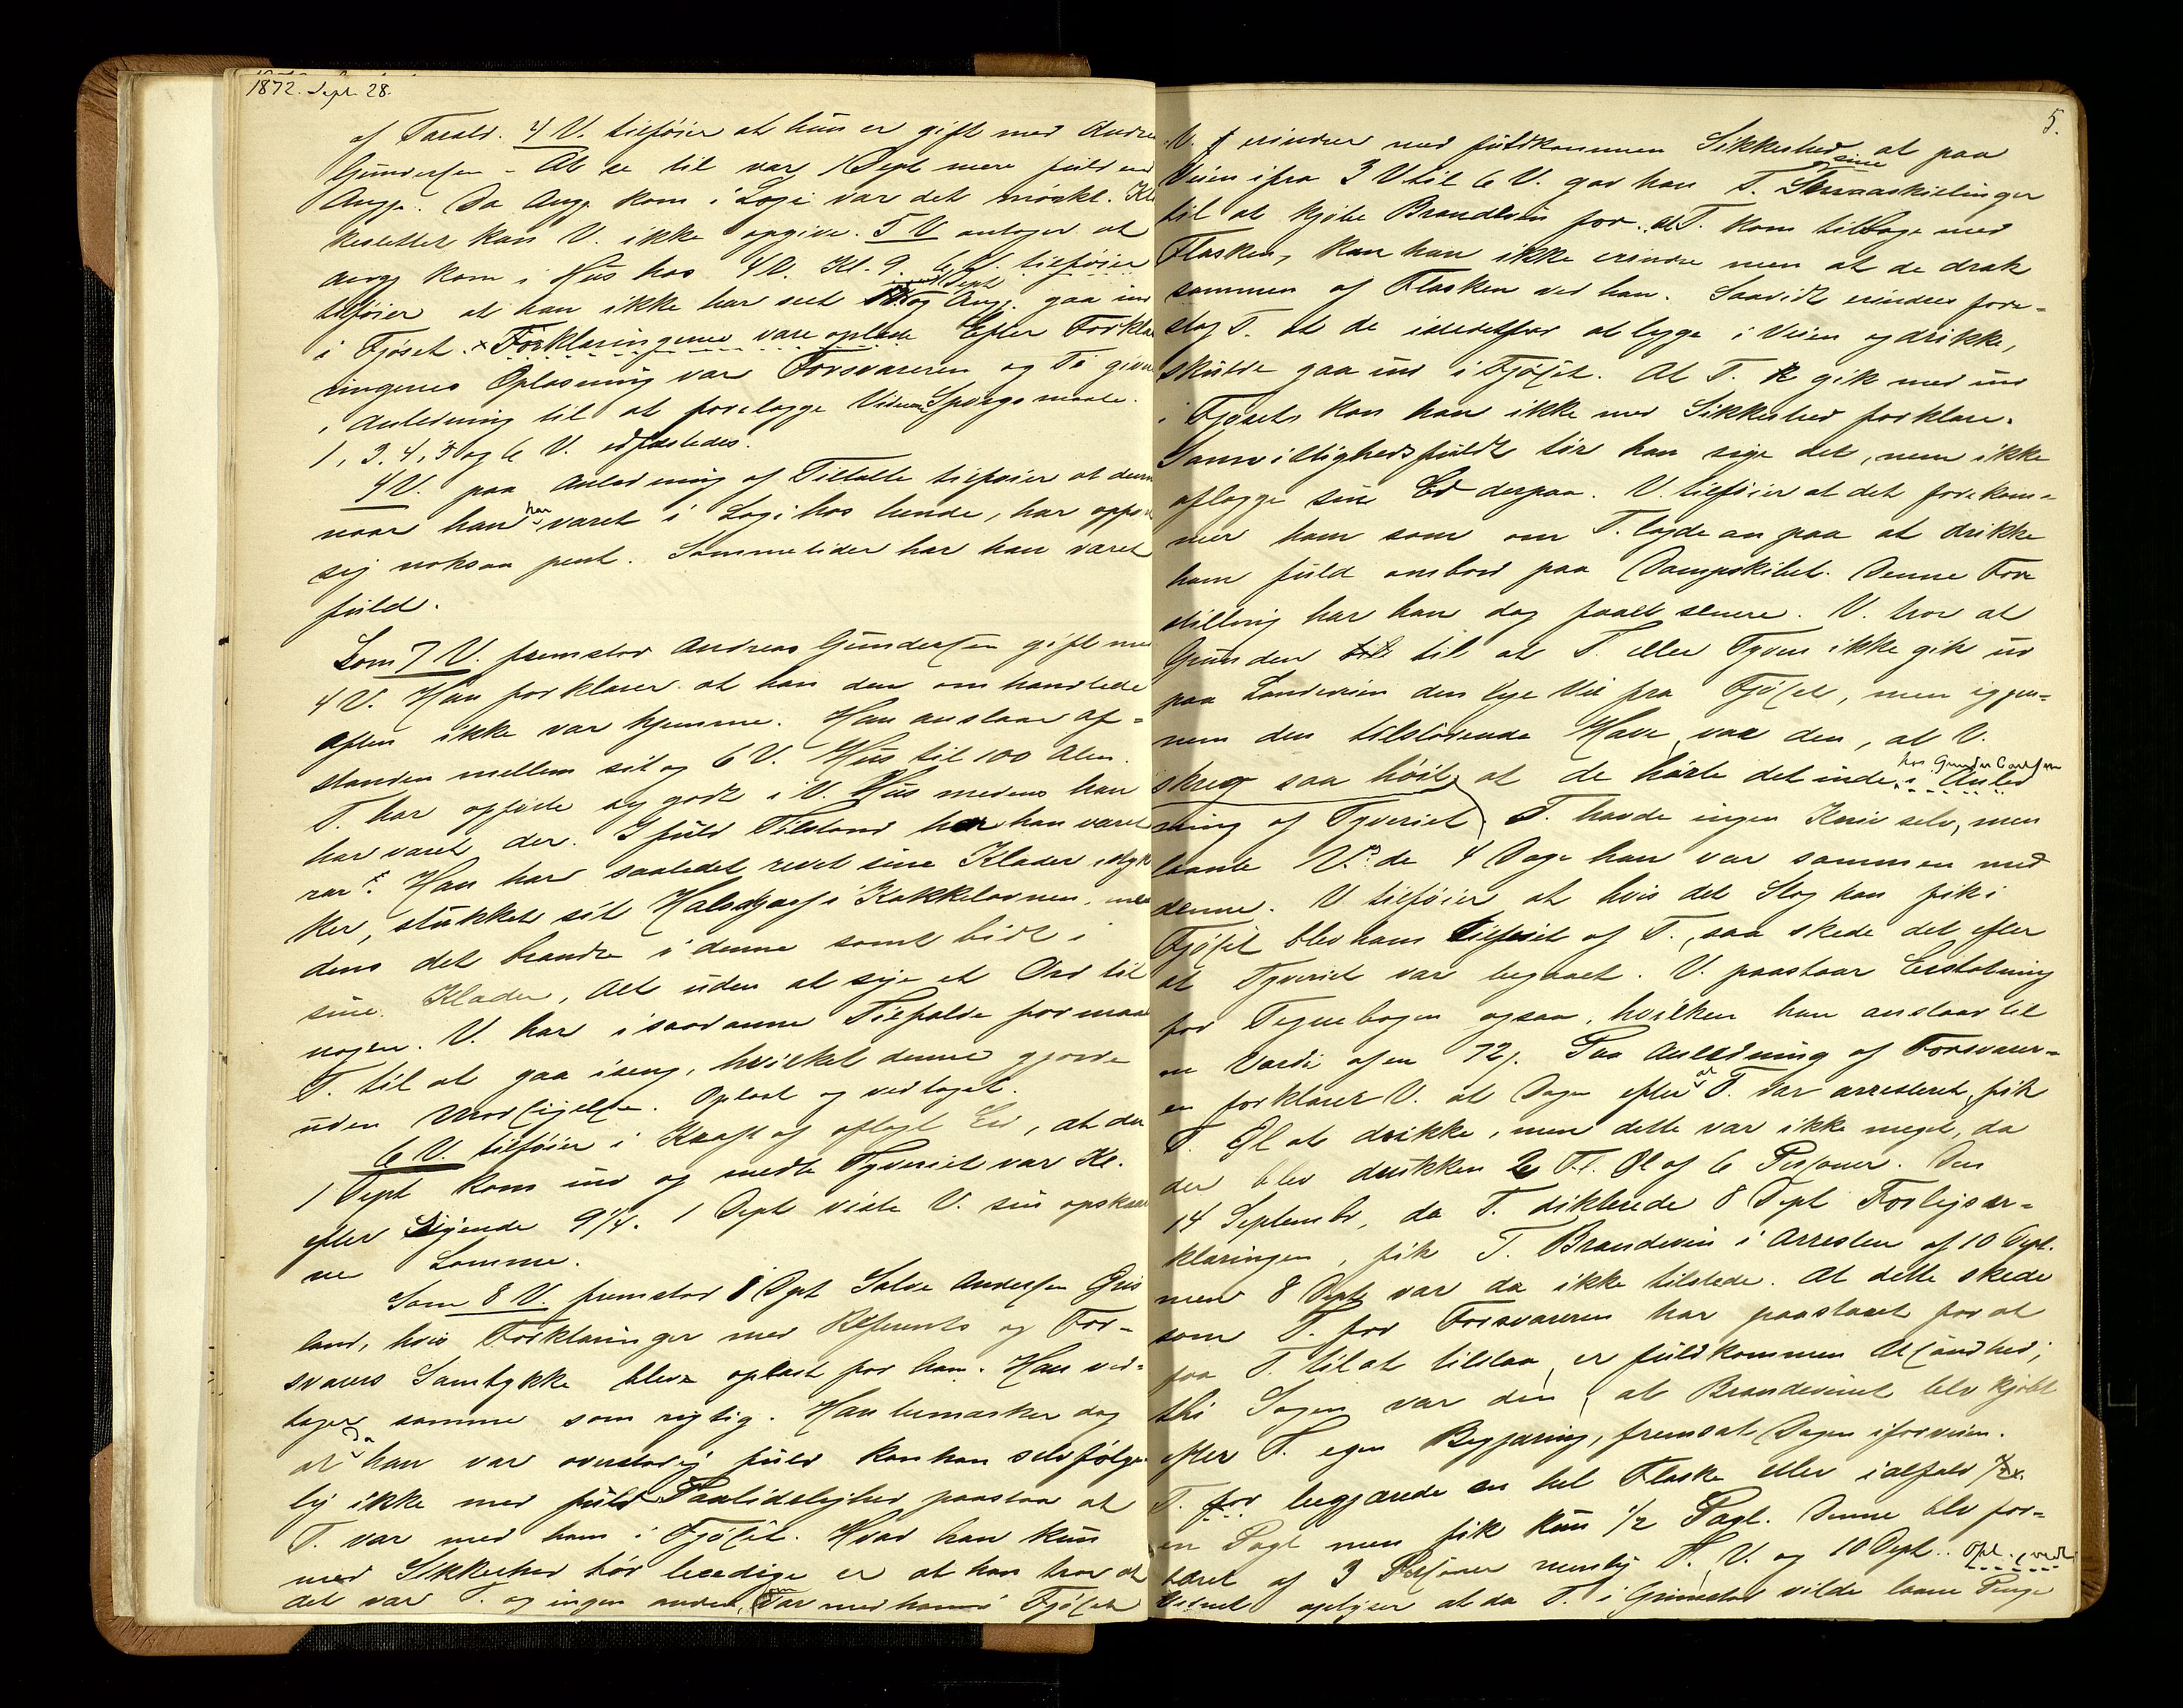 1872. Sept 28.
af Tarald. 4 V. tilføier at hun er gift med Andreas
Gundersen – At se til var 1 Dept mere fuld end
Angj. Da Angj. kom i Logi var det mørkt. Klok-
keslettet kan V. ikke opgive. 5 V antager at
Angj kom i Hus hos 4 V. Kl. 9. 6 V. tilføier
tilføier at han ikke har seet Dept og Angj. gaa ind
i Fjøset. × Forklaringerne vare oplæste Efter Forkla
ringernes Oplæsning var Forsvareren og T. given
Anledning til at forelægge Vidnerne Spørgsmaale.
1, 3, 4, 5 og 6 V. edfæstedes.
4 V. paa Anledning af Tiltalte tilføier at denne
naar han har været i Logi hos hende, har opført
sig noksaa pent. Sommetider har han været
fuld.
Som 7 V. fremstod Andreas Gundersen gift med
4 V. Han forklarer at han den omhandlede
Aften ikke var hjemme. Han anslaar Af-
standen mellem sit og 6 V. Hus til 100 Alen.
T. har opført sig godt i V. Hus medens han
har været der. I fuld Tilstand har han været
rar. Han har saaledes revet sine Klæder i Styk
ker, stukket sit Halstørklæde i Kakkelovnen, me
dens det brændte i denne samt bidt i
sine Klæder, Alt uden at sige et Ord til
nogen. V. har i saadanne Tilfælde formaaet
T. til at gaa iseng, hvilket denne gjorde
uden Modsigelse. Oplæst og vedtaget.
6 V. tilføier i Kraft af aflagt Ed, at da
1 Dept kom ind og meldte Tyveriet var Kl.
efter Sigende 9 1/4. 1 Dept viste V. sin opskaar
ne Lomme.
Som 8 V. fremstod 8 Dept Salve Andersen Gris
land, hvis Forklaringer med Referents og For-
svarers Samtykke bleve oplæst for ham. Han ved-
tager samme som rigtig. Han bemærker dog
at da han var overstadig fuld kan han selvfølge
lig ikke med fuld Paalidelighed paastaa at
T. var med ham i Fjøset. Hvad han kun
med Sikkerhed tør beedige er at han tror at
det var T. og ingen anden, som var med ham i Fjøset
5.
V. erindrer med fuldkommen Sikkerhed at paa
Veien ifra 3 V til 6 V. gav han T. sine Smaaskillinger
til at kjøbe Brændevin for. At T. kom tilbage med
Flasken, kan han ikke erindre men at de drak
sammen af Flasken ved han. Saavidt erindres fore-
slog T. at de istedetfor at ligge i Veien og drikke,
skulde gaa ind i Fjøset. At T. gik med ind
i Fjøset kan han ikke med Sikkerhed forklare.
Samvittighedsfuldt tør han sige det, men ikke
aflægge sin Ed derpaa. V. tilføier at det forekom-
mer ham som om T. lagde an paa at drikke
ham fuld ombord paa Dampskibet. Denne Fore
stilling har han dog faaet senere. V. tror at
Grunden til at T. eller Tyven ikke gik ud
paa Landeveien den lige Vei fra Fjøset, men igjen-
nem den tilstødende Have, var den, at V.
skreg saa høit, at de hørte det inde hos Gunder Carlsen i Anled
ning af Tyveriet. T. havde ingen Kniv selv, men
laante V.s de 4 Dage han var sammen med
denne. V tilføier at hvis det Slag han fik i
Fjøset blev ham tilføiet af T., saa skede det efter
at Tyveriet var begaaet. V. paastaar Erstatning
for Tegnebogen ogsaa, hvilken han anslaar til
en Værdi af en 12 s. Paa Anledning af Forsvarer-
en forklarer V. at Dagen efter at T. var arresteret, fik
T. Øl at drikke, men dette var ikke meget, da
der blev drukken 2 Fl. Øl af 6 Personer. Den
14 September, da T. dikterede 8 Dept Forligser-
klæringen, fik T. Brændevin i Arresten af 10 Dept.
men 8 Dept var da ikke tilstede. At dette skede
som T. for Forsvareren har paastaaet for at
faa T. til at tilstaa, er fuldkommen Usandhed;
thi Sagen var den, at Brændevinet blev kjøbt
efter T. egen Begjæring, fremsat Dagen iforveien.
T. begjærede en hel Flaske eller ialfald
en Pægl men fik kun 1/2 Pægl. Denne blev for-
tæret af 3 Personer nemlig T, V. og 10 Dept. Opl. vedt.
Vidnet oplyser at da T. i Grimstad vilde laane Penge